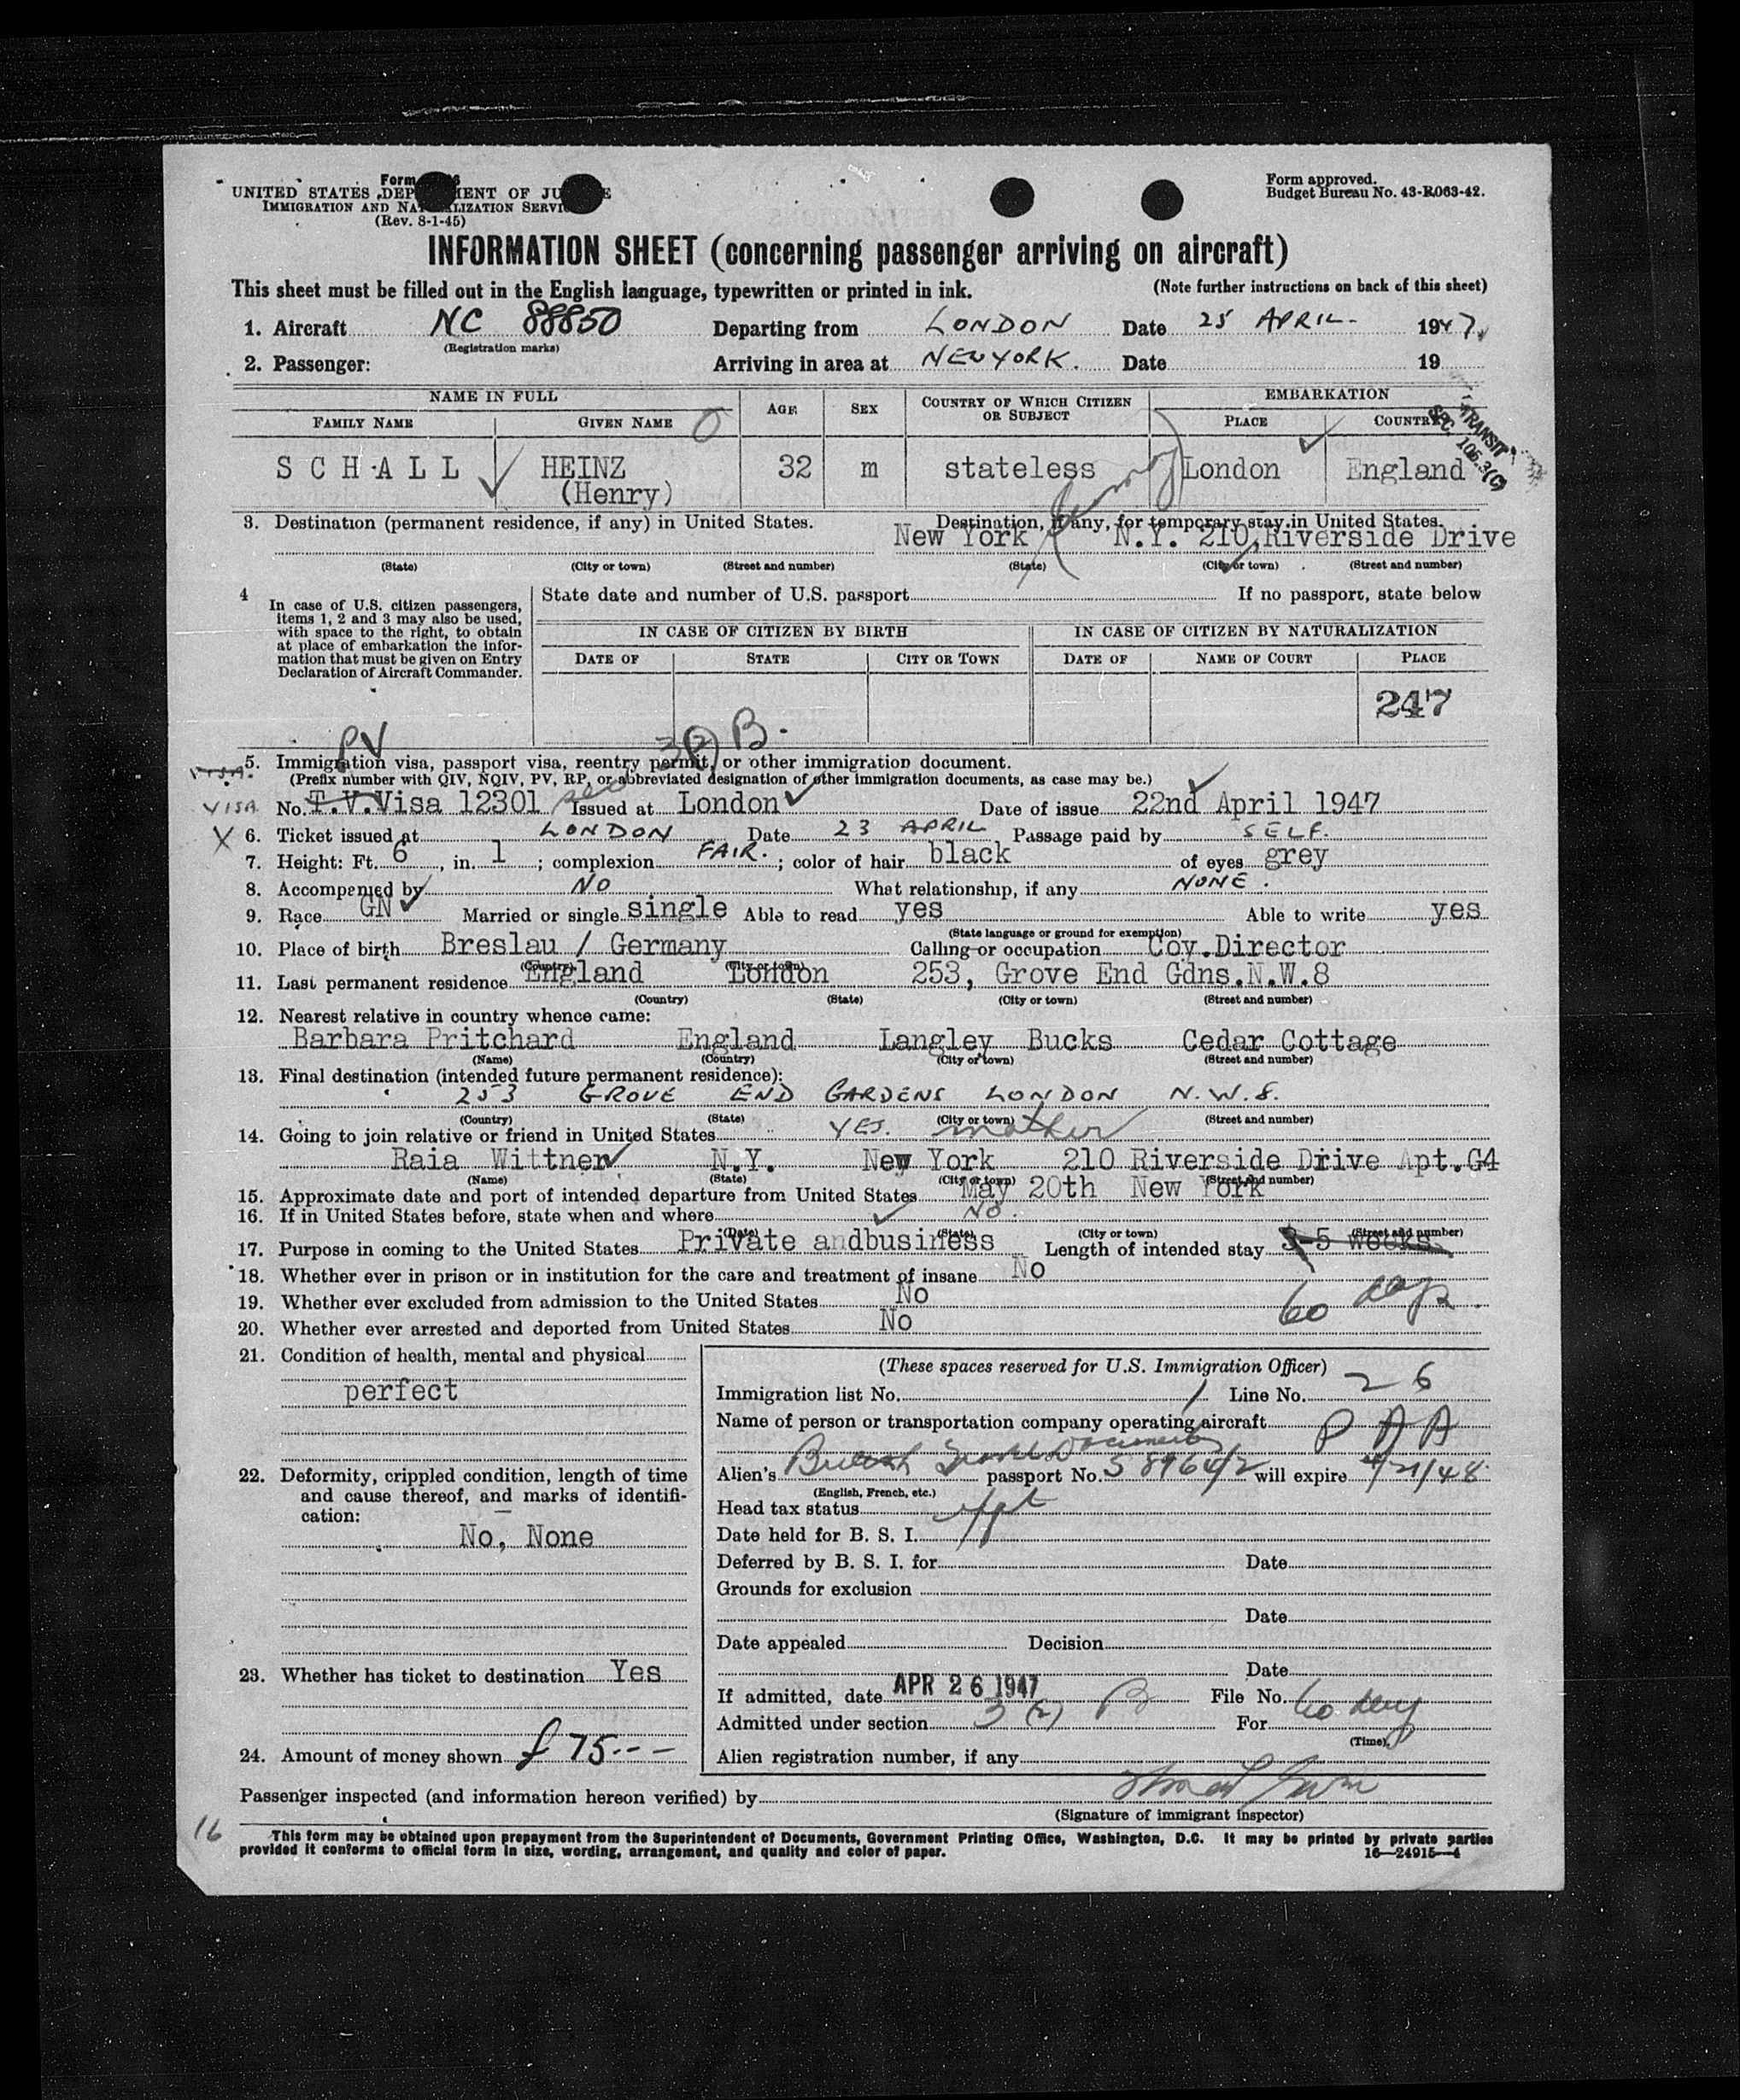 Form
UNITED STATES DEP MENT OF JU E
IMMIGRATION AND NA LIZATION SERVI
(Rev. 8-1-45)
Form approved.
Budget Bureau No. 43-R063-42.
INFORMATION SHEET (concerning passenger arriving on aircraft)
This sheet must be filled out in the English language, typewritten or printed in ink. (Note further instructions on back of this sheet)
1. Aircraft NC 88850 Departing from LONDON Date 25 APRIL- 1947.
(Registration marks)
2. Passenger: Arriving in area at NEW YORK. Date 19
NAME IN FULL AGE SEX COUNTRY OF WHICH CITIZEN OR SUBJECT EMBARKATION
FAMILY NAME GIVEN NAME PLACE COUNTRY
TRANSIT
SPC. 106.3(C)
SCHALL HEINZ 32 m stateless London England
(Henry)
3. Destination (permanent residence, if any) in United States. Destination, if any, for temporary stay in United States.
New York N.Y. 210, Riverside Drive
(State) (City or town) (Street and number) (State) (City or town) (Street and number)
4 In case of U.S. citizen passengers, items 1, 2 and 3 may also be used, with space to the right, to obtain at place of embarkation the information that must be given on Entry Declaration of Aircraft Commander.
State date and number of U.S. passport If no passport, state below
IN CASE OF CITIZEN BY BIRTH IN CASE OF CITIZEN BY NATURALIZATION
DATE OF STATE CITY OR TOWN DATE OF NAME OF COURT PLACE
247
PV 3(2) B.
5. Immigration visa, passport visa, reentry permit, or other immigration document.
(Prefix number with QIV, NQIV, PV, RP, or abbreviated designation of other immigration documents, as case may be.)
VISA No. T.V.Visa 12301 Issued at London Date of issue 22nd April 1947
X 6. Ticket issued at LONDON Date 23 APRIL Passage paid by SELF.
7. Height: Ft. 6, in. 1; complexion FAIR.; color of hair black of eyes grey
8. Accompanied by NO What relationship, if any NONE.
9. Race GN Married or single single Able to read yes Able to write yes
(State language or ground for exemption)
10. Place of birth Breslau / Germany Calling or occupation Coy.Director
(Country) (City or town)
11. Last permanent residence England London 253, Grove End Gdns.N.W.8
(Country) (State) (City or town) (Street and number)
12. Nearest relative in country whence came:
Barbara Pritchard England Langley Bucks Cedar Cottage
(Name) (Country) (City or town) (Street and number)
13. Final destination (intended future permanent residence):
253 GROVE END GARDENS LONDON N.W.8.
(Country) (State) (City or town) (Street and number)
14. Going to join relative or friend in United States YES. mother
Raia Wittner N.Y. New York 210 Riverside Drive Apt.G4
(Name) (State) (City or town) (Street and number)
15. Approximate date and port of intended departure from United States May 20th New York
16. If in United States before, state when and where NO.
(Date) (State) (City or town) (Street and number)
17. Purpose in coming to the United States Private andbusiness Length of intended stay 3-5 weeks
18. Whether ever in prison or in institution for the care and treatment of insane No
60 days
19. Whether ever excluded from admission to the United States No
20. Whether ever arrested and deported from United States No
21. Condition of health, mental and physical
perfect
22. Deformity, crippled condition, length of time and cause thereof, and marks of identification:
No, None
23. Whether has ticket to destination Yes
24. Amount of money shown £ 75---
(These spaces reserved for U.S. Immigration Officer)
Immigration list No. 1 Line No. 26
Name of person or transportation company operating aircraft PAA
Alien's British Documents passport No. will expire 4/21/48
(English, French, etc.)
Head tax status
Date held for B. S. I.
Deferred by B. S. I. for Date
Grounds for exclusion
Date
Date appealed Decision
Date
If admitted, date APR 26 1947 File No. 60 day
Admitted under section 3(2) B For
(Time)
Alien registration number, if any
Passenger inspected (and information hereon verified) by
(Signature of immigrant inspector)
16
This form may be obtained upon prepayment from the Superintendent of Documents, Government Printing Office, Washington, D.C. It may be printed by private parties
provided it conforms to official form in size, wording, arrangement, and quality and color of paper. 16—24915—4